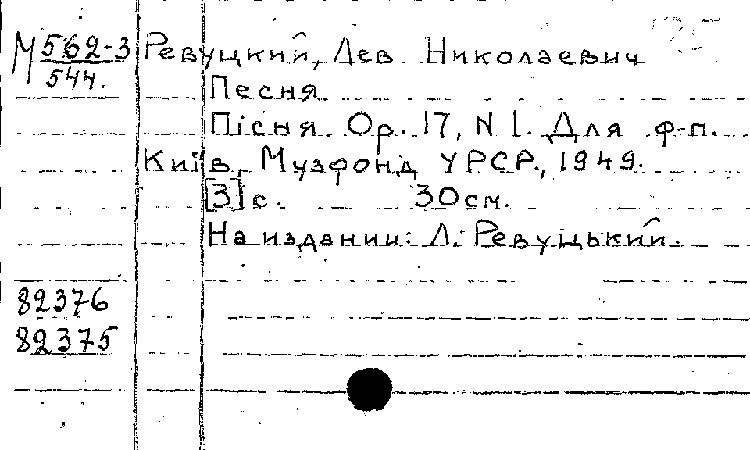 М 562-3 Ревуцкий, Лев Николаевич
544.
Песня
Пісня Op. 17, N 1. Для ф-п.
Київ, Музфонд УРСР., 1949.
[3] с. 30 см.
На издании: Л. Ревуцький.
82376
82375